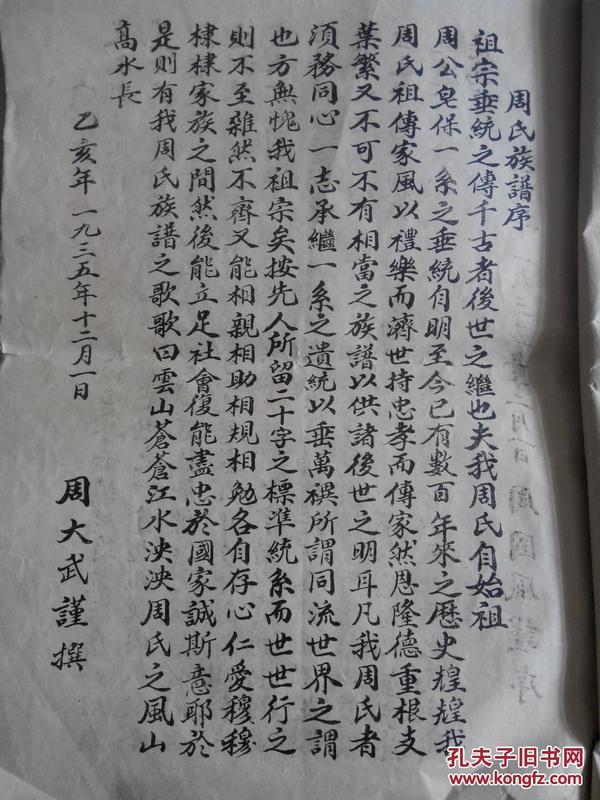 周氏族譜序
祖宗垂統之傳千古者後世之繼也夫我周氏自始祖
周公皂保一系之垂統自明至今已有數百年來之歷史煌煌我
周氏祖傳家風以禮樂而濟世持忠孝而傳家然恩隆德重根支
葉繁又不可不有相當之族譜以供諸後世之明耳凡我周氏者
須務同心一志承繼一系之遺統以垂萬禩所謂同流世界之謂
也方無愧我祖宗矣按先人所留二十字之標準統系而世世行之
則不至雜然不齊又能相親相助相規相勉各自存心仁愛穆穆
棣棣家族之間然後能立足社會復能盡忠於國家誠斯意耶於
是則有我周氏族譜之歌歌曰雲山蒼蒼江水泱泱周氏之風山
高水長
乙亥年 一九三五年十二月一日
周大武謹撰
孔夫子旧书网
www.kongfz.com